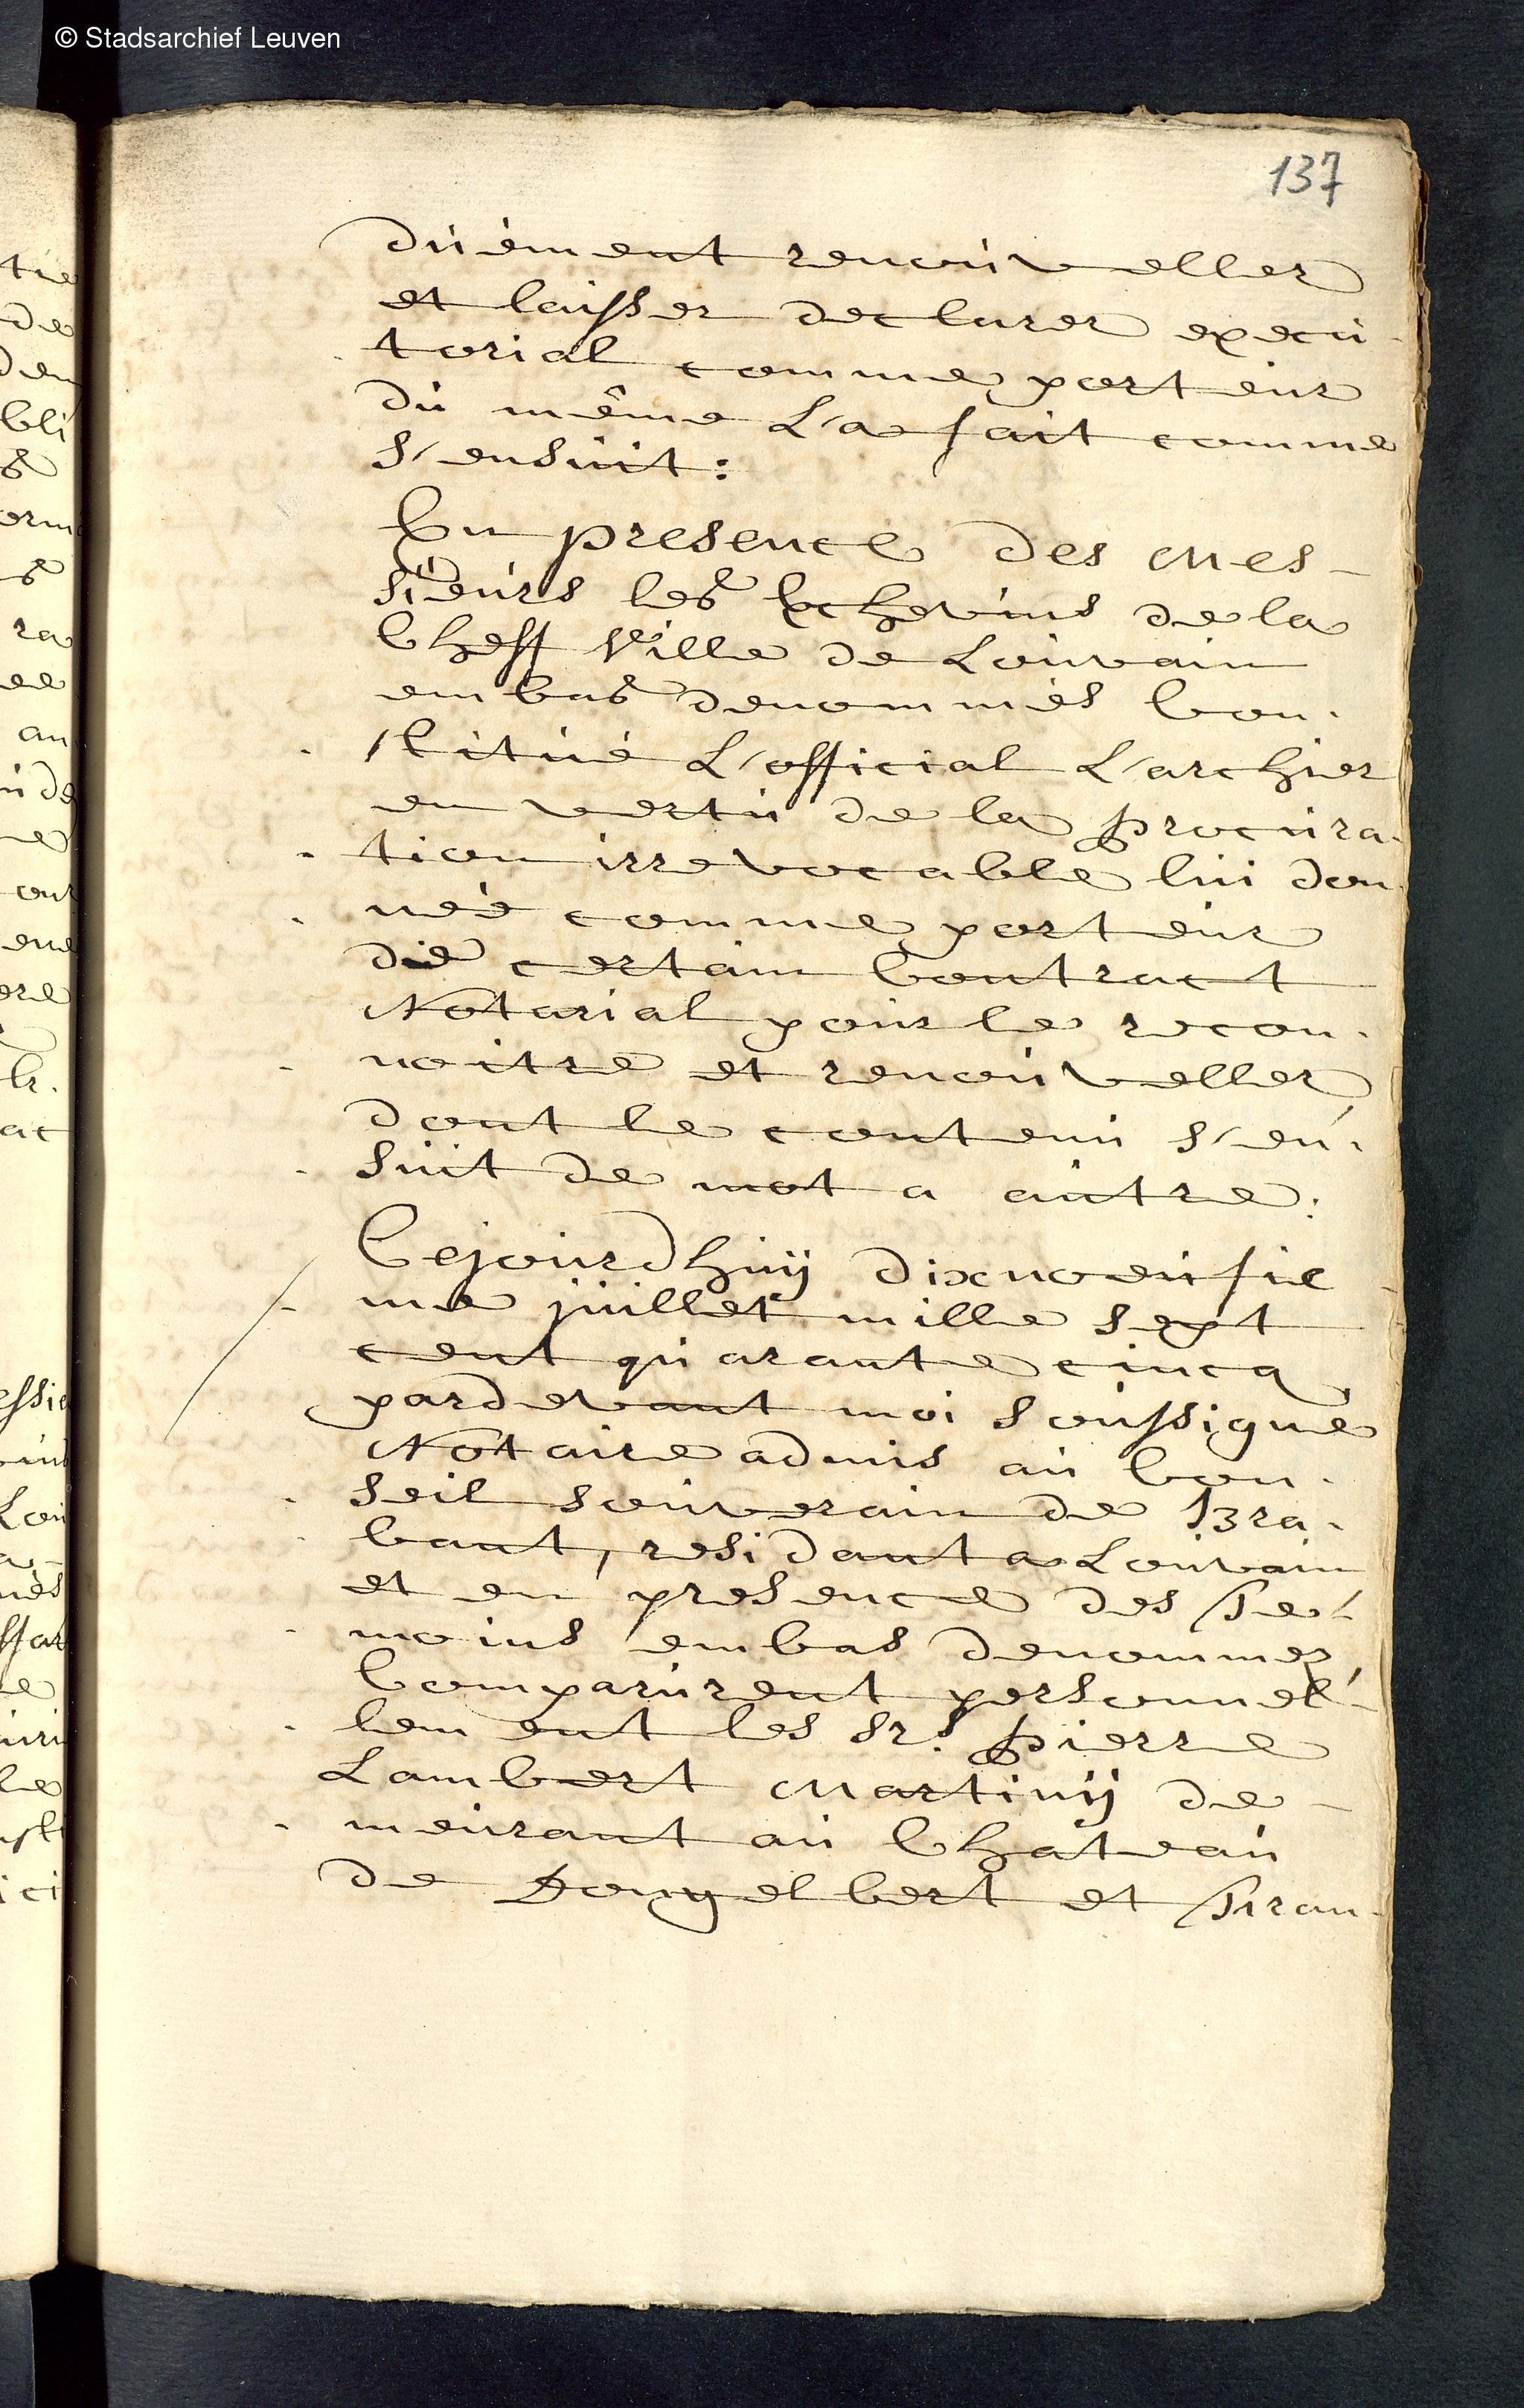 © Stadsarchief Leuven
137
duëment renouveller
et laisser declarer execu-
torial comme porteur
du même L'a fait comme
s'ensuit:
En presence des Mes-
sieurs les Echevins de la
Cheff Ville de Louvain
embas denommés Con-
stitué L'official L'archier
en vertu de la procura-
tion irrevocable lui don-
née comme porteur
de certain Contract
Notarial pour le recon-
noitre et renouveller
dont le contenu s'en-
suit de mot a autre:
Cejourdhuij dixneufie-
me juillet mille sept
cent quarante cincq
pardevant moi soussigne
Notaire admis au Con-
seil souverain de Bra-
bant, residant a Louvain
et en presence des Te-
moins embas denommez
Comparurent personnel-
lement les Srs. pierre
Lambert Martinij de-
meurant au Château
de Dongelbert et Fran-